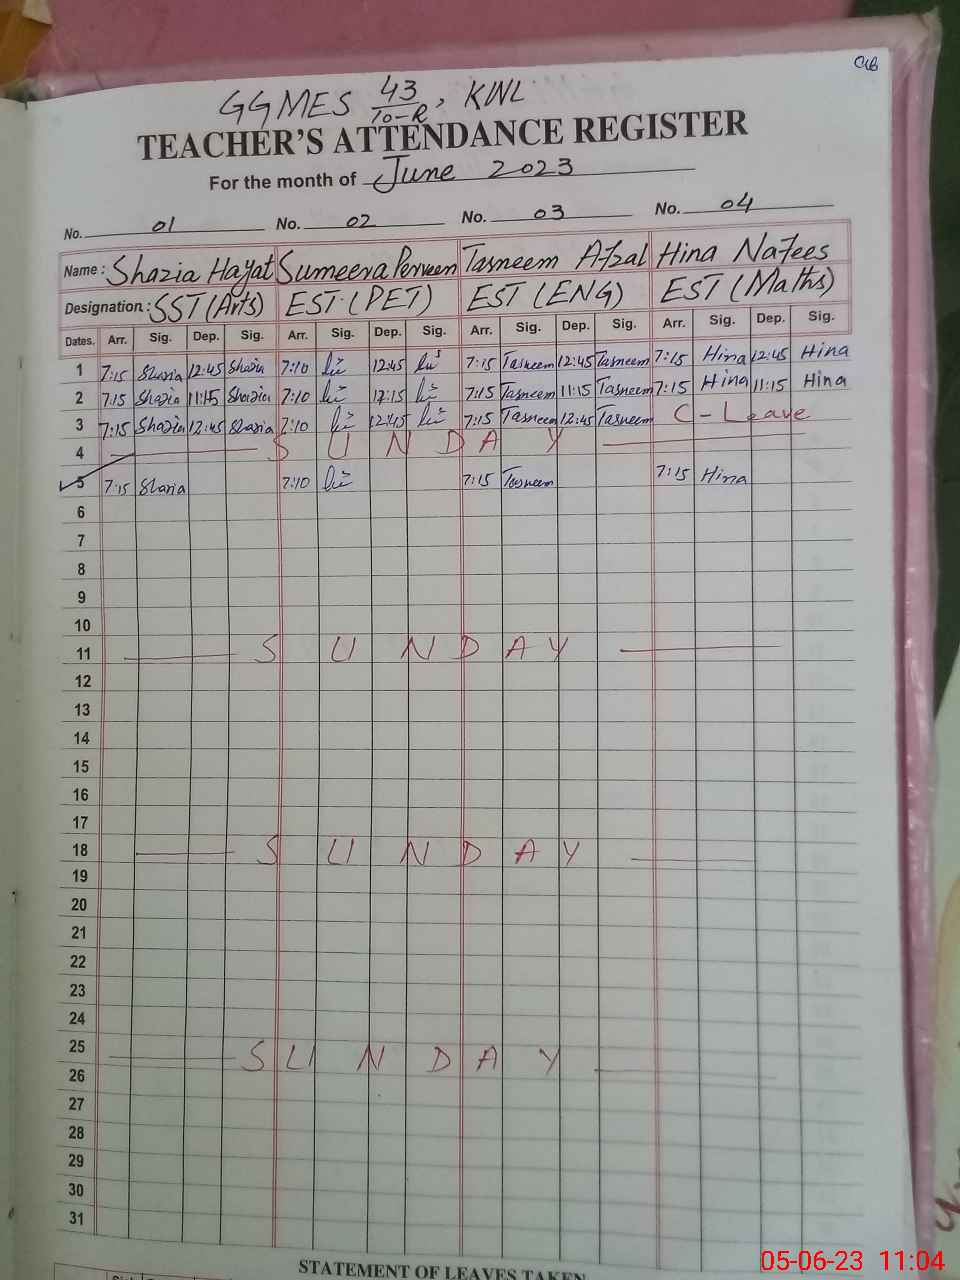 CUB
GGMES 43/10-R, KWL
TEACHER'S ATTENDANCE REGISTER
For the month of June 2023
No. 01 No. 02 No. 03 No. 04
Name : Shazia Hayat Sumeera Perveen Tasneem Afzal Hina Nafees
Designation : SST (Arts) EST (PET) EST (ENG) EST (Maths)
Dates. Arr. Sig. Dep. Sig. Arr. Sig. Dep. Sig. Arr. Sig. Dep. Sig. Arr. Sig. Dep. Sig.
1 7:15 Shazia 12:45 Shazia 7:10 12:45 7:15 Tasneem 12:45 Tasneem 7:15 Hina 12:45 Hina
2 7:15 Shazia 11:15 Shazia 7:10 7:15 Tasneem 11:15 Tasneem 7:15 Hina 11:15 Hina
3 7:15 Shazia 12:45 Shazia 7:10 12:45 7:15 Tasneem 12:45 Tasneem C - Leave
4 SUNDAY
5 7:15 Shazia 7:10 7:15 Tasneem 7:15 Hina
6
7
8
9
10
11 SUNDAY
12
13
14
15
16
17
18 SUNDAY
19
20
21
22
23
24
25 SUNDAY
26
27
28
29
30
31
STATEMENT OF LEAVES TAKEN
05-06-23 11:04